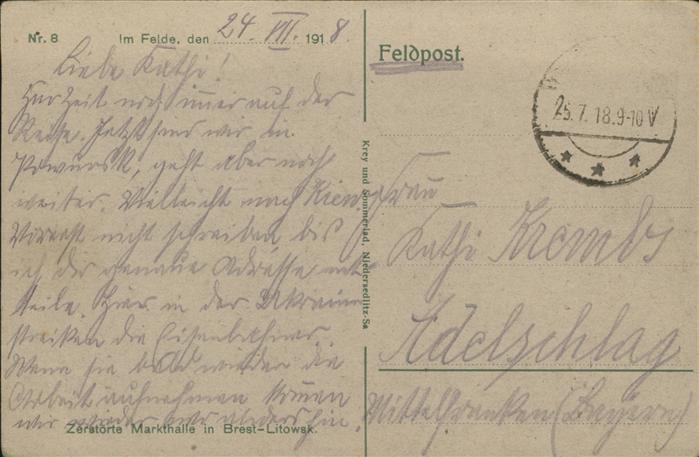 Nr. 8 Im Felde, den 24. VII. 1918.
Liebe Kathi!
Zur Zeit noch immer auf der
Reise. Jetzt sind wir in
Powursk, geht aber noch
weiter. Vielleicht nach Kiew.
Vorerst nicht schreiben bis
ich dir genaue Adresse mit
teile. Hier in der Ukraine
streiken die Eisenbahner.
Wenn sie bald wieder die
Arbeit aufnehmen können
wir wieder
Zerstörte Markthalle in Brest-Litowsk.
Krey und Sommerlad, Niedersedlitz-Sa
Feldpost.
25.7.18.9-10 V
Frau
Kathi Krembs
Adelschlag
Mittelfranken (Bayern)